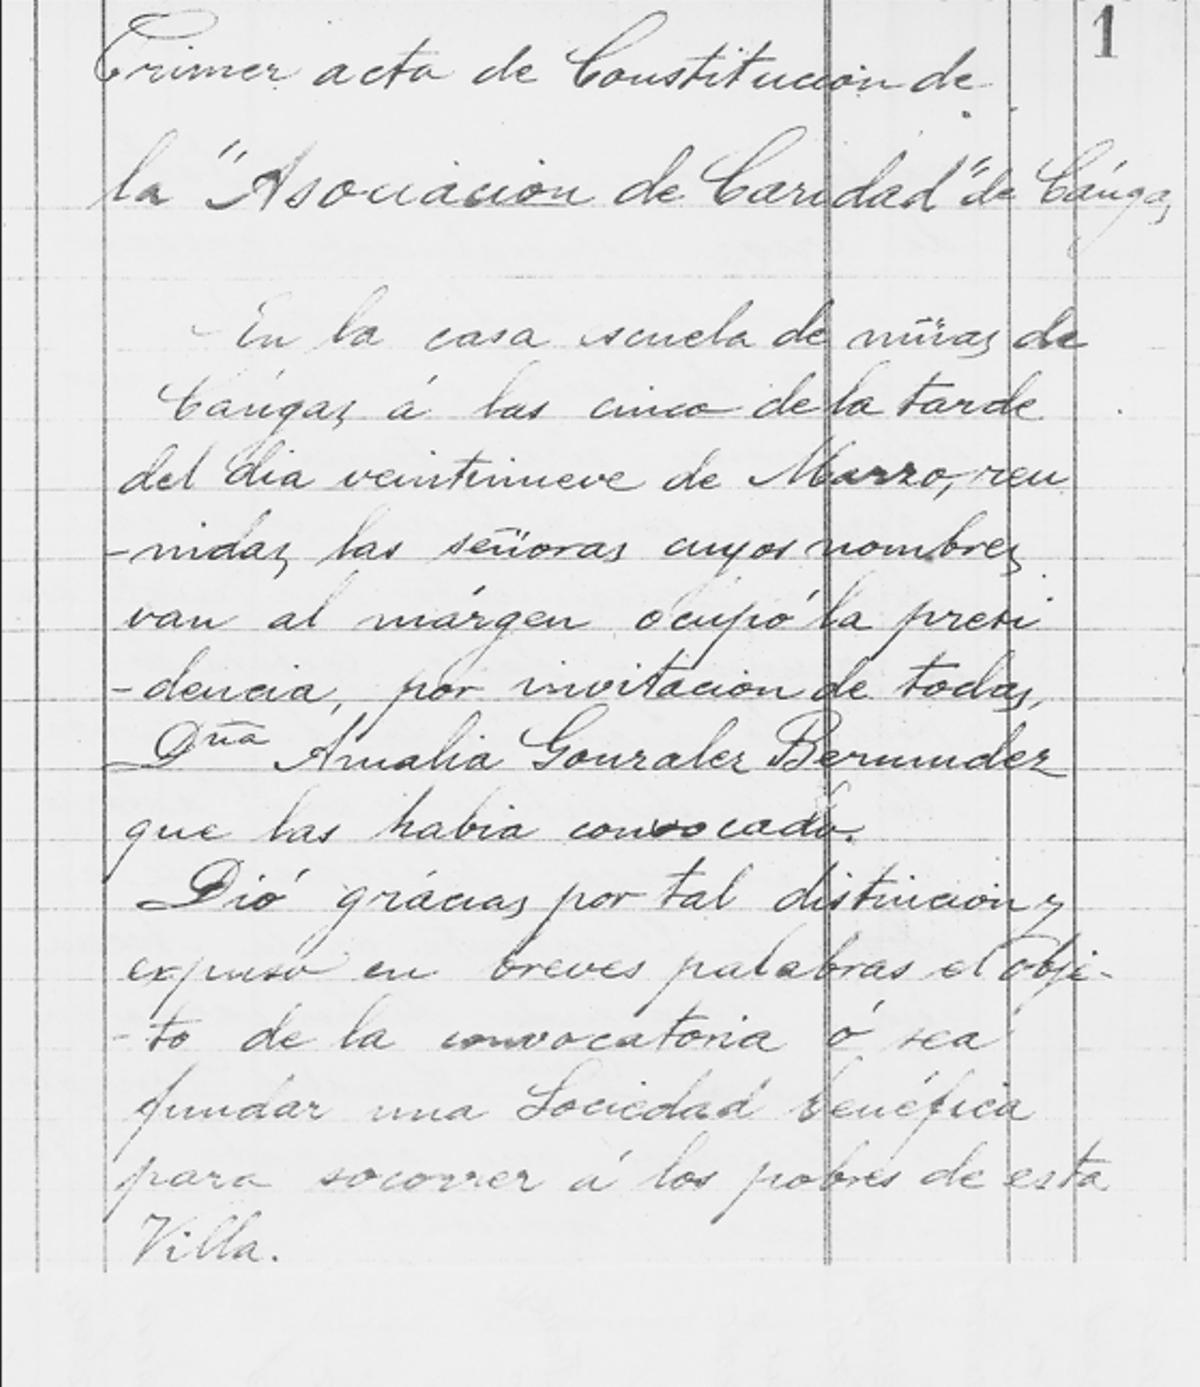 1
Primer acta de Constitución de
la "Asociación de Caridad" de Cángas
En la casa escuela de niñas de
Cángas, á las cinco de la tarde
del dia veintinueve de Marzo, reu
-nidas las señoras cuyos nombres
van al márgen ocupó la presi
-dencia, por invitacion de todas,
Dña Amalia Gonzalez Bermudez
que las habia convocado.
Dió grácias por tal distincion y
expuso en breves palabras el obje-
-to de la convocatoria ó sea
fundar una Sociedad benéfica
para socorrer á los pobres de esta
Villa.